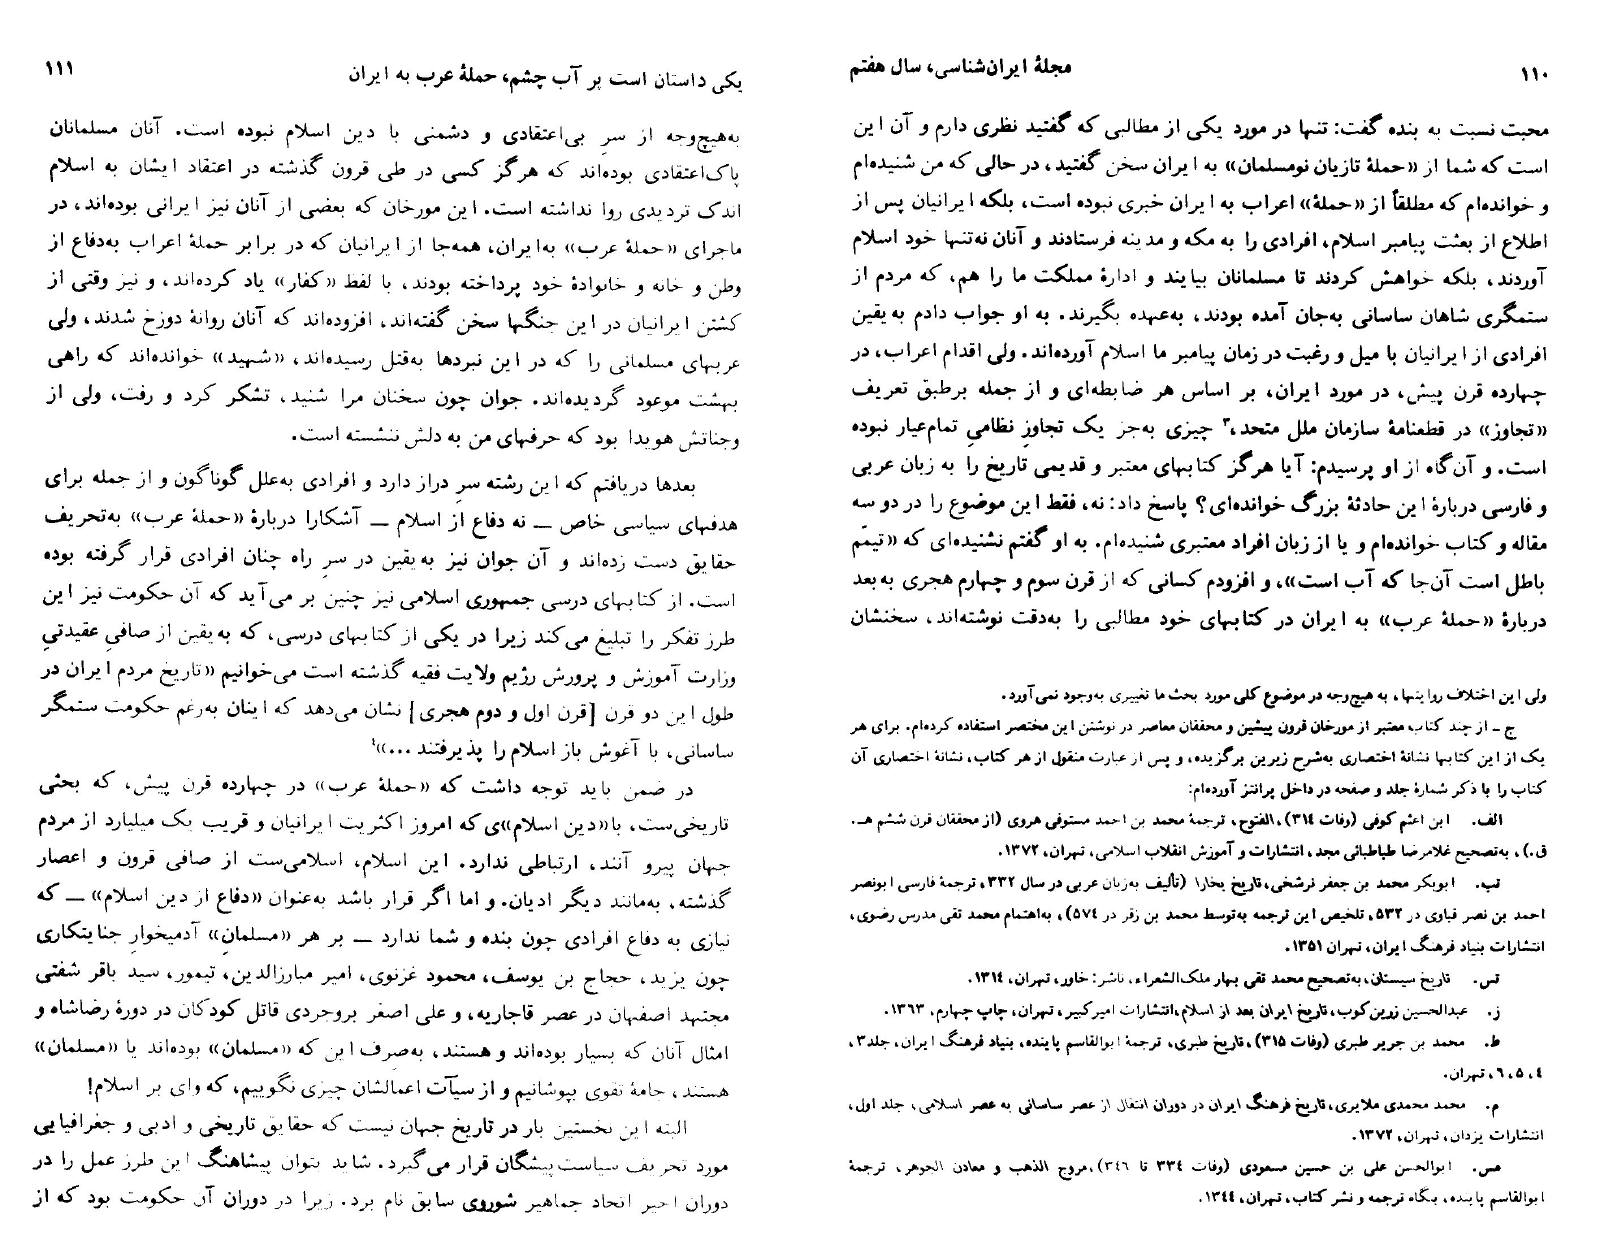 ۱۱۰
مجلهٔ ایران‌شناسی، سال هفتم
محبت نسبت به بنده گفت: تنها در مورد یکی از مطالبی که گفتید نظری دارم و آن این
است که شما از «حملهٔ تازیان نومسلمان» به ایران سخن گفتید، در حالی که من شنیده‌ام
و خوانده‌ام که مطلقاً از «حملهٔ» اعراب به ایران خبری نبوده است، بلکه ایرانیان پس از
اطلاع از بعثت پیامبر اسلام، افرادی را به مکه و مدینه فرستادند و آنان نه‌تنها خود اسلام
آوردند، بلکه خواهش کردند تا مسلمانان بیایند و ادارهٔ مملکت ما را هم، که مردم از
ستمگری شاهان ساسانی به‌جان آمده بودند، به‌عهده بگیرند. به او جواب دادم به‌یقین
افرادی از ایرانیان با میل و رغبت در زمان پیامبر ما اسلام آورده‌اند. ولی اقدام اعراب، در
چهارده قرن پیش، در مورد ایران، بر اساس هر ضابطه‌ای و از جمله برطبق تعریف
«تجاوز» در قطعنامهٔ سازمان ملل متحد،۳ چیزی به‌جز یک تجاوزِ نظامیِ تمام‌عیار نبوده
است. و آن‌گاه از او پرسیدم: آیا هرگز کتابهای معتبر و قدیمی تاریخ را به زبان عربی
و فارسی دربارهٔ این حادثهٔ بزرگ خوانده‌ای؟ پاسخ داد: نه، فقط این موضوع را در دو سه
مقاله و کتاب خوانده‌ام و یا از زبان افراد معتبری شنیده‌ام. به او گفتم نشنیده‌ای که «تیمّم
باطل است آن‌جا که آب است»، و افزودم کسانی که از قرن سوم و چهارم هجری به‌بعد
دربارهٔ «حملهٔ عرب» به ایران در کتابهای خود مطالبی را به‌دقت نوشته‌اند، سخنشان
ولی این اختلاف روایتها، به هیچ‌وجه در موضوع کلی مورد بحث ما تغییری به‌وجود نمی‌آورد.
ج ـ از چند کتاب معتبر از مورخان قرون پیشین و محققان معاصر در نوشتن این مختصر استفاده کرده‌ام. برای هر
یک از این کتابها نشانهٔ اختصاری به‌شرح زیرین برگزیده، و پس از عبارت منقول از هر کتاب، نشانهٔ اختصاری آن
کتاب را با ذکر شمارهٔ جلد و صفحه در داخل پرانتز آورده‌ام:
الف. ابن اعثم کوفی (وفات ۳۱۴)، الفتوح، ترجمهٔ محمد بن احمد مستوفی هروی (از محققان قرن ششم هـ.
ق.)، به‌تصحیح غلامرضا طباطبائی مجد، انتشارات و آموزش انقلاب اسلامی، تهران، ۱۳۷۲.
تب. ابوبکر محمد بن جعفر نرشخی، تاریخ بخارا (تألیف به‌زبان عربی در سال ۳۳۲، ترجمهٔ فارسی ابونصر
احمد بن نصر قباوی در ۵۳۲، تلخیص این ترجمه به‌توسط محمد بن زفر در ۵۷۴)، به‌اهتمام محمد تقی مدرس رضوی،
انتشارات بنیاد فرهنگ ایران، تهران ۱۳۵۱.
تس. تاریخ سیستان، به‌تصحیح محمد تقی بهار ملک‌الشعراء، ناشر: خاور، تهران، ۱۳۱۴.
ز. عبدالحسین زرین‌کوب، تاریخ ایران بعد از اسلام، انتشارات امیرکبیر، تهران، چاپ چهارم، ۱۳۶۳.
ط. محمد بن جریر طبری (وفات ۳۱۵)، تاریخ طبری، ترجمهٔ ابوالقاسم پاینده، بنیاد فرهنگ ایران، جلد ۳،
۴، ۵، ۶، تهران.
م. محمد محمدی ملایری، تاریخ فرهنگ ایران در دوران انتقال از عصر ساسانی به عصر اسلامی، جلد اول،
انتشارات یزدان، تهران، ۱۳۷۲.
مس. ابوالحسن علی بن حسین مسعودی (وفات ۳۳۴ تا ۳۴۶)، مروج الذهب و معادن الجوهر، ترجمهٔ
ابوالقاسم پاینده، بنگاه ترجمه و نشر کتاب، تهران، ۱۳۴۴.
یکی داستان است پر آب چشم، حملهٔ عرب به ایران
۱۱۱
به‌هیچ‌وجه از سرِ بی‌اعتقادی و دشمنی با دین اسلام نبوده است. آنان مسلمانان
پاک‌اعتقادی بوده‌اند که هرگز کسی در طی قرون گذشته در اعتقاد ایشان به اسلام
اندک تردیدی روا نداشته است. این مورخان که بعضی از آنان نیز ایرانی بوده‌اند، در
ماجرای «حملهٔ عرب» به‌ایران، همه‌جا از ایرانیان که در برابر حملهٔ اعراب به‌دفاع از
وطن و خانه و خانوادهٔ خود پرداخته بودند، با لفظ «کفار» یاد کرده‌اند، و نیز وقتی از
کشتن ایرانیان در این جنگها سخن گفته‌اند، افزوده‌اند که آنان روانهٔ دوزخ شدند، ولی
عربهای مسلمانی را که در این نبردها به‌قتل رسیده‌اند، «شهید» خوانده‌اند که راهی
بهشت موعود گردیده‌اند. جوان چون سخنان مرا شنید، تشکر کرد و رفت، ولی از
وجناتش هویدا بود که حرفهای من به دلش ننشسته است.
بعدها دریافتم که این رشته سرِ دراز دارد و افرادی به‌علل گوناگون و از جمله برای
هدفهای سیاسی خاص ــ نه دفاع از اسلام ــ آشکارا دربارهٔ «حملهٔ عرب» به‌تحریف
حقایق دست زده‌اند و آن جوان نیز به‌یقین در سرِ راه چنان افرادی قرار گرفته بوده
است. از کتابهای درسی جمهوری اسلامی نیز چنین بر می‌آید که آن حکومت نیز این
طرز تفکر را تبلیغ می‌کند زیرا در یکی از کتابهای درسی، که به‌یقین از صافیِ عقیدتیِ
وزارت آموزش و پرورش رژیم ولایت فقیه گذشته است می‌خوانیم «تاریخ مردم ایران در
طول این دو قرن [قرن اول و دوم هجری] نشان می‌دهد که اینان به‌رغم حکومت ستمگر
ساسانی، با آغوش باز اسلام را پذیرفتند ...»۴
در ضمن باید توجه داشت که «حملهٔ عرب» در چهارده قرن پیش، که بحثی
تاریخی‌ست، با «دین اسلام»ی که امروز اکثریت ایرانیان و قریب یک میلیارد از مردم
جهان پیرو آنند، ارتباطی ندارد. این اسلام، اسلامی‌ست از صافی قرون و اعصار
گذشته، به‌مانند دیگر ادیان. و اما اگر قرار باشد به‌عنوان «دفاع از دین اسلام» ــ که
نیازی به دفاع افرادی چون بنده و شما ندارد ــ بر هر «مسلمانِ» آدمیخوارِ جنایتکاری
چون یزید، حجاج بن یوسف، محمود غزنوی، امیر مبارزالدین، تیمور، سید باقر شفتی
مجتهد اصفهان در عصر قاجاریه، و علی اصغر بروجردی قاتل کودکان در دورهٔ رضاشاه و
امثال آنان که بسیار بوده‌اند و هستند، به‌صِرف این که «مسلمان» بوده‌اند یا «مسلمان»
هستند، جامهٔ تقوی بپوشانیم و از سیآت اعمالشان چیزی نگوییم، که وای بر اسلام!
البته این نخستین بار در تاریخ جهان نیست که حقایق تاریخی و ادبی و جغرافیایی
مورد تحریف سیاست‌پیشگان قرار می‌گیرد. شاید بتوان پیشاهنگ این طرز عمل را در
دوران اخیر اتحاد جماهیر شوروی سابق نام برد. زیرا در دوران آن حکومت بود که از